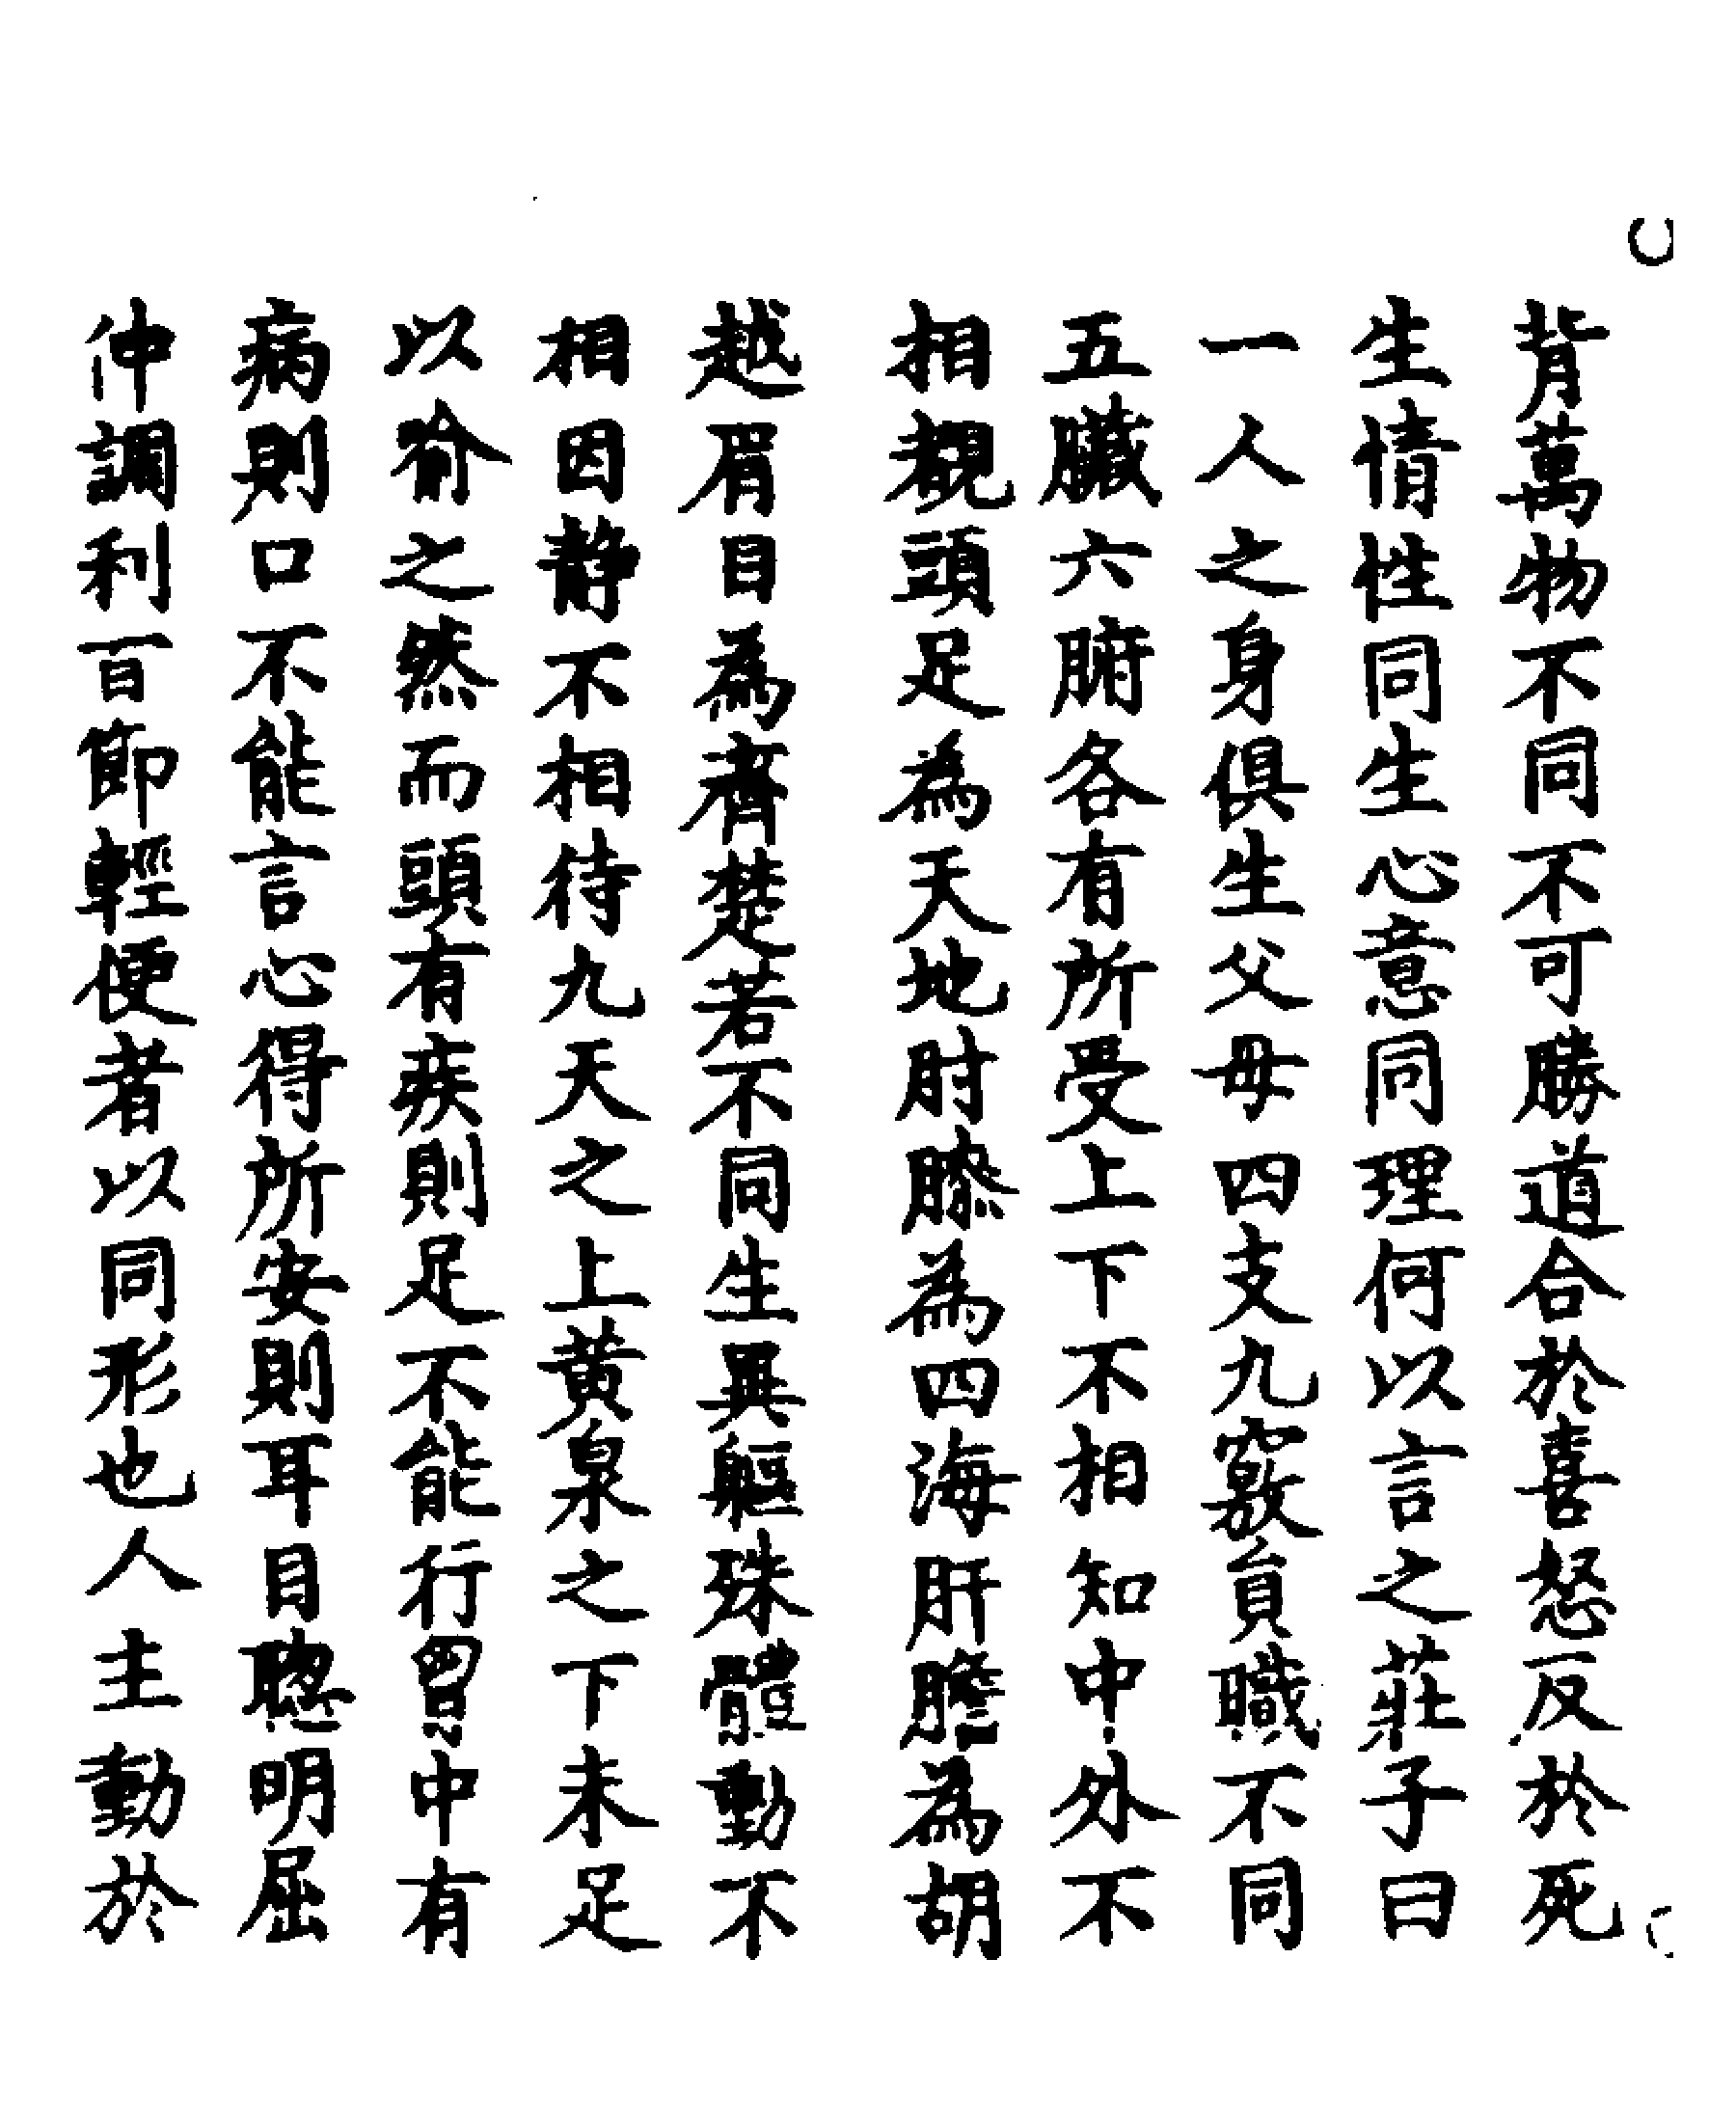 背萬物不同不可勝道合於喜怒反於死
生情性同生心意同理何以言之莊子曰
一人之身俱生父母四支九竅負職不同
五臟六腑各有所受上下不相知中外不
相覩頭足為天地肘膝為四海肝膽為胡
越眉目為齊楚若不同生異軀殊體動不
相因静不相待九天之上黄泉之下未足
以喻之然而頭有疾則足不能行胷中有
病則口不能言心得所安則耳目聰明屈
伸調利百節輕便者以同形也人主動於